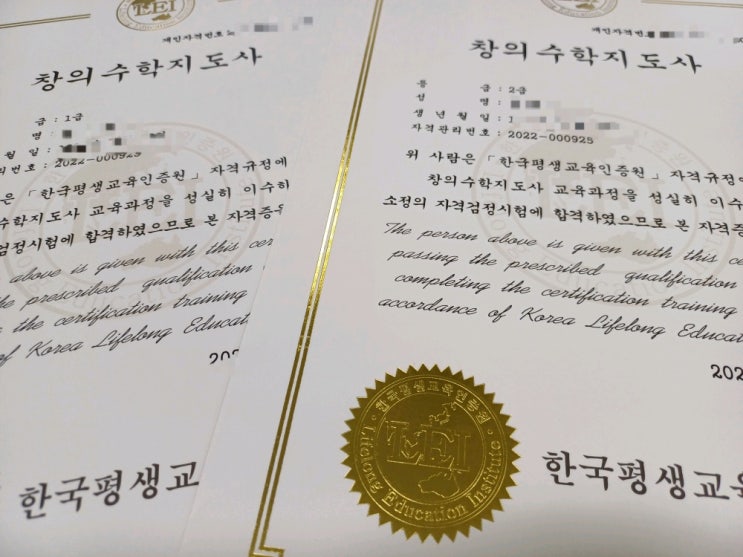 LEI
개인자격번호
창의수학지도사
급 : 1급
명 :
월 일 :
번호 : 2022-000925
은 「한국평생교육인증원」 자격규정에
수학지도사 교육과정을 성실히 이수하
검정시험에 합격하였으므로 본 자격증
above is given with this cer
the prescribed qualification
the certification training
of Korea Lifelong Educat
202
한국평생교
개인자격번호
창의수학지도사
등 급 : 2급
성 명 :
생 년 월 일 : 1
자격관리번호 : 2022-000925
위 사람은 「한국평생교육인증원」 자격규정에
창의수학지도사 교육과정을 성실히 이수
소정의 자격검정시험에 합격하였으므로 본 자격증
The person above is given with this ce
passing the prescribed qualification
completing the certification training
accordance of Korea Lifelong Educa
202
한국평생교육인증원
LEI
Lifelong Education Institute
한국평생교육